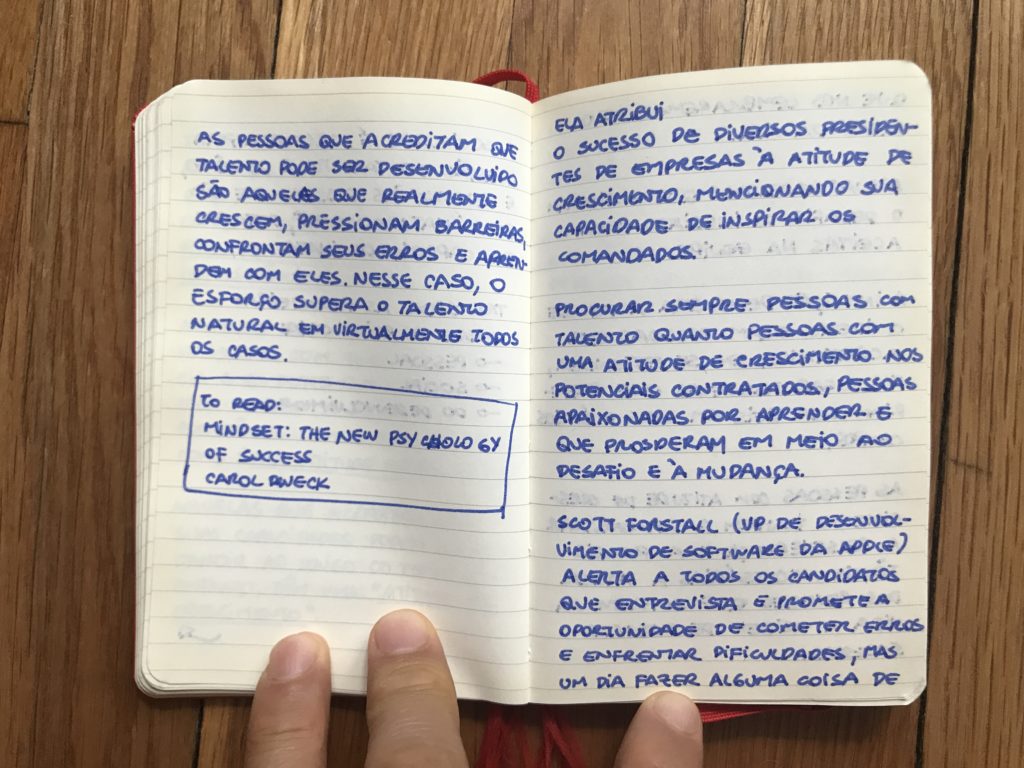 AS PESSOAS QUE ACREDITAM QUE
TALENTO PODE SER DESENVOLVIDO
SÃO AQUELES QUE REALMENTE
CRESCEM, PRESSIONAM BARREIRAS,
CONFRONTAM SEUS ERROS E APREN-
DEM COM ELES. NESSE CASO, O
ESFORÇO SUPERA O TALENTO
NATURAL EM VIRTUALMENTE TODOS
OS CASOS.
TO READ:
MINDSET: THE NEW PSYCHOLOGY
OF SUCCESS
CAROL DWECK
ELA ATRIBUI
O SUCESSO DE DIVERSOS PRESIDEN-
TES DE EMPRESAS À ATITUDE DE
CRESCIMENTO, MENCIONANDO SUA
CAPACIDADE DE INSPIRAR OS
COMANDADOS.
PROCURAR SEMPRE PESSOAS COM
TALENTO QUANTO PESSOAS COM
UMA ATITUDE DE CRESCIMENTO NOS
POTENCIAIS CONTRATADOS, PESSOAS
APAIXONADAS POR APRENDER E
QUE PROSPERAM EM MEIO AO
DESAFIO E À MUDANÇA.
SCOTT FORSTALL (VP DE DESENVOL-
VIMENTO DE SOFTWARE DA APPLE)
ALERTA A TODOS OS CANDIDATOS
QUE ENTREVISTA E PROMETE A
OPORTUNIDADE DE COMETER ERROS
E ENFRENTAR DIFICULDADES, MAS
UM DIA FAZER ALGUMA COISA DE